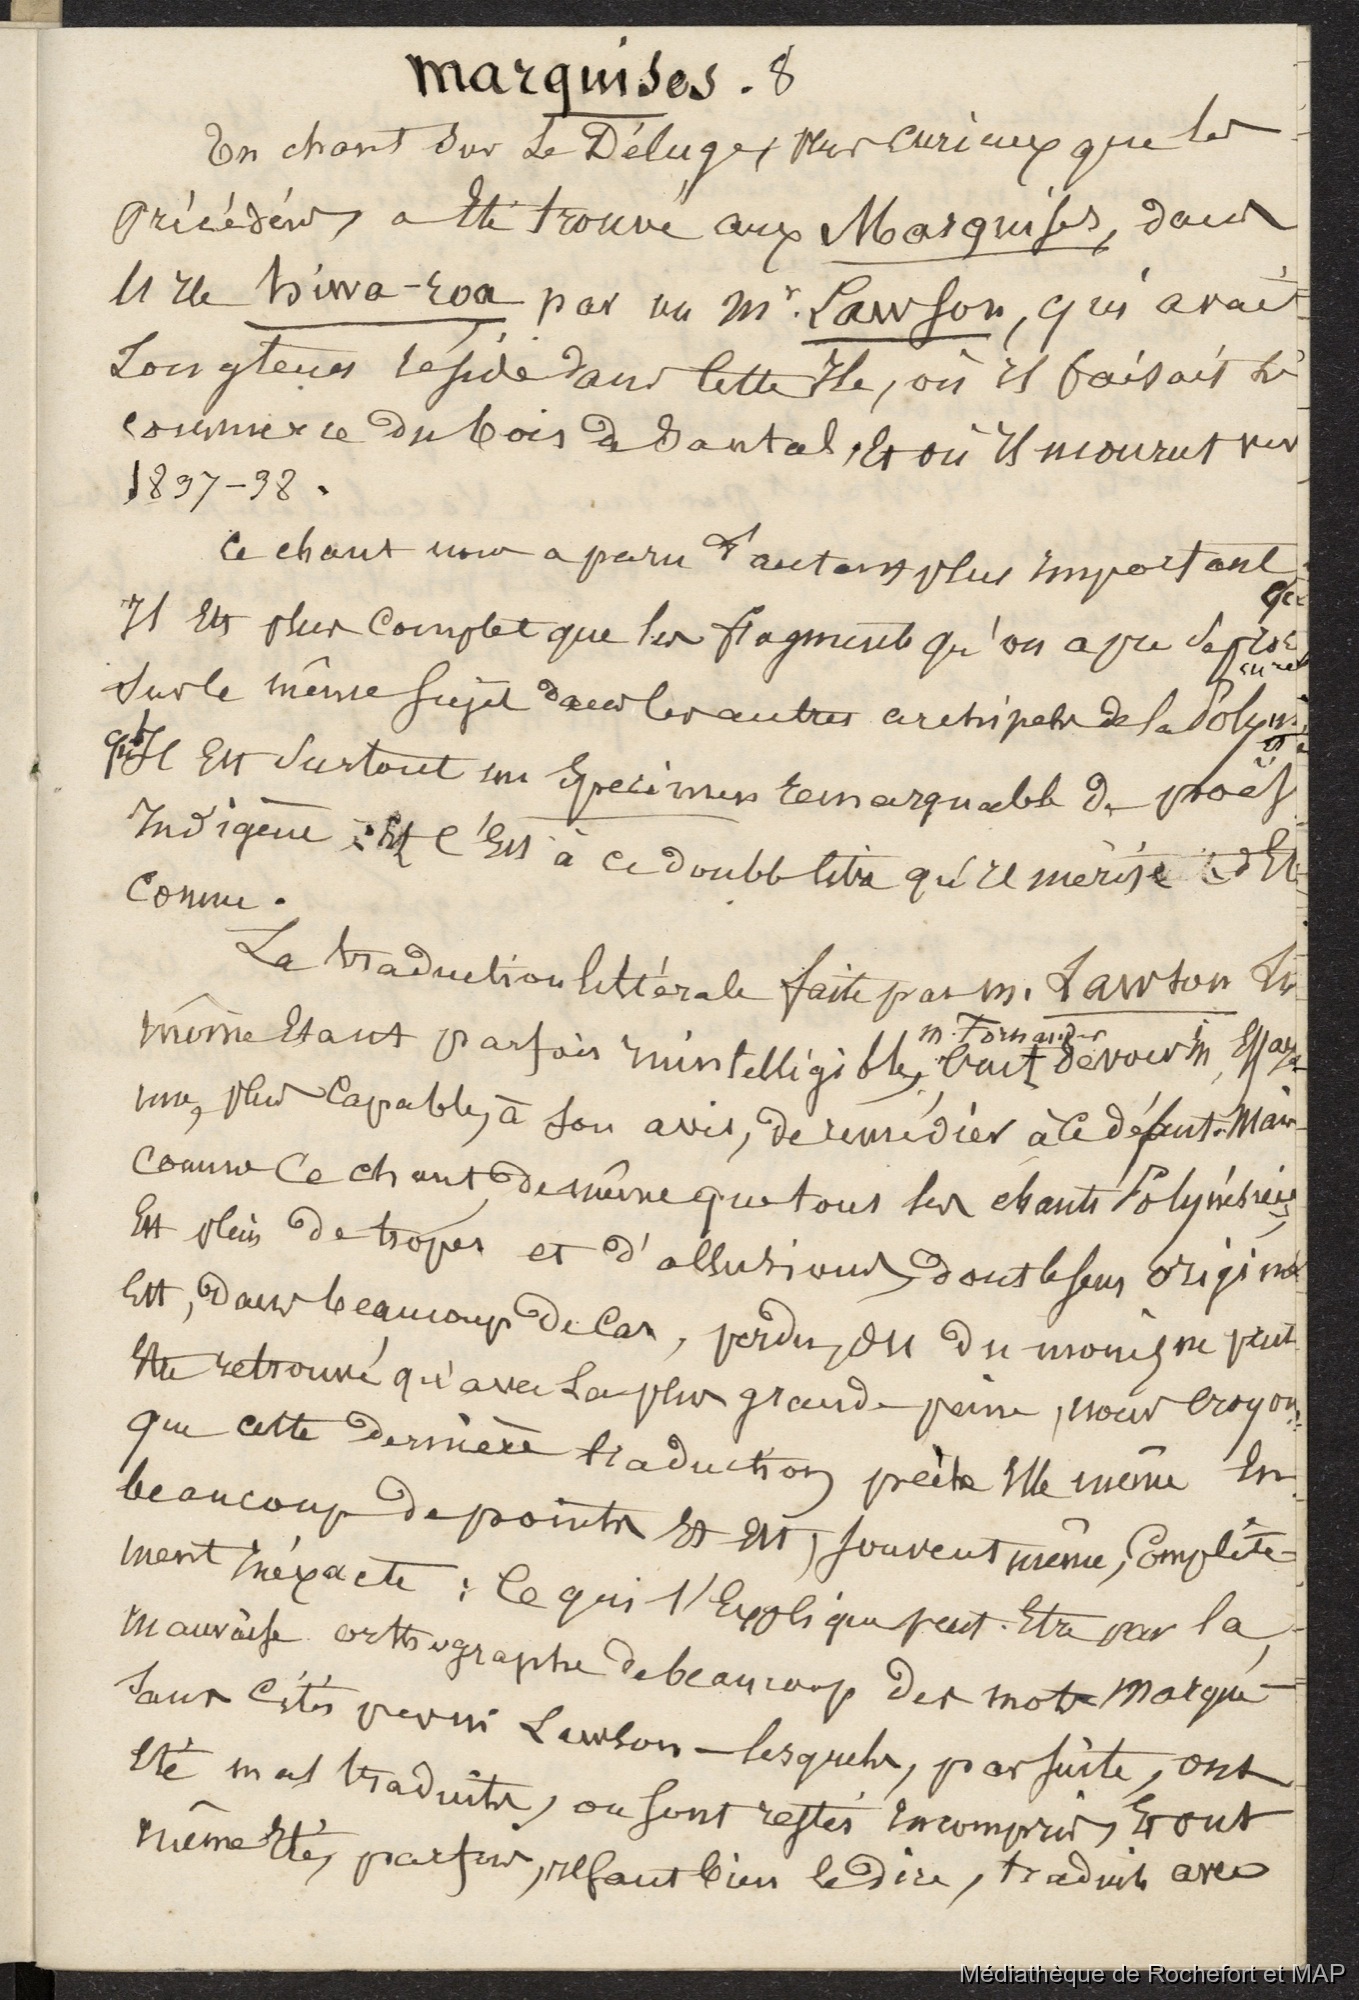 Marquises. 8
Un chant sur le Déluge, plus curieux que les
précédens, a été trouvé aux Marquises, dans
l'île hiwa-roa par un Mr. Lawson, qui avait
longtems résidé dans cette île, où il faisait le
commerce du bois de Santal, et où il mourut vers
1837-38.
Ce chant nous a paru d'autant plus important que
Il est plus complet que les fragments qu'on a pu se procurer
sur le même sujet dans les autres archipels de la Polynésie
qu'Il est surtout un specimen remarquable de poësie
indigène ; et c'est à ce double titre qu'il mérite d'être
connu.
La traduction littérale faite par M. Lawson lui
même étant parfois inintelligible, M. Fornander
crut devoir en essayer
une, plus capable, à son avis, de remédier à ce défaut. Mais
comme ce chant, de même que tous les chants Polynésiens,
est plein de tropes et d'allusions, dont le sens original
est, dans beaucoup de cas, perdu, ou du moins ne peut
être retrouvé qu'avec la plus grande peine, nous croyons
que cette dernière traduction pèche elle même en
beaucoup de points et est, souvent même, complète-
ment inéxacte : ce qui s'explique peut-être par la
mauvaise orthographe de beaucoup des mots Marqué-
sans cités par Lawson - lesquels, par suite, ont
été mal traduits, ou sont restés incompris, et ont
même été, parfois, il faut bien le dire, traduits avec
Médiathèque de Rochefort et MAP